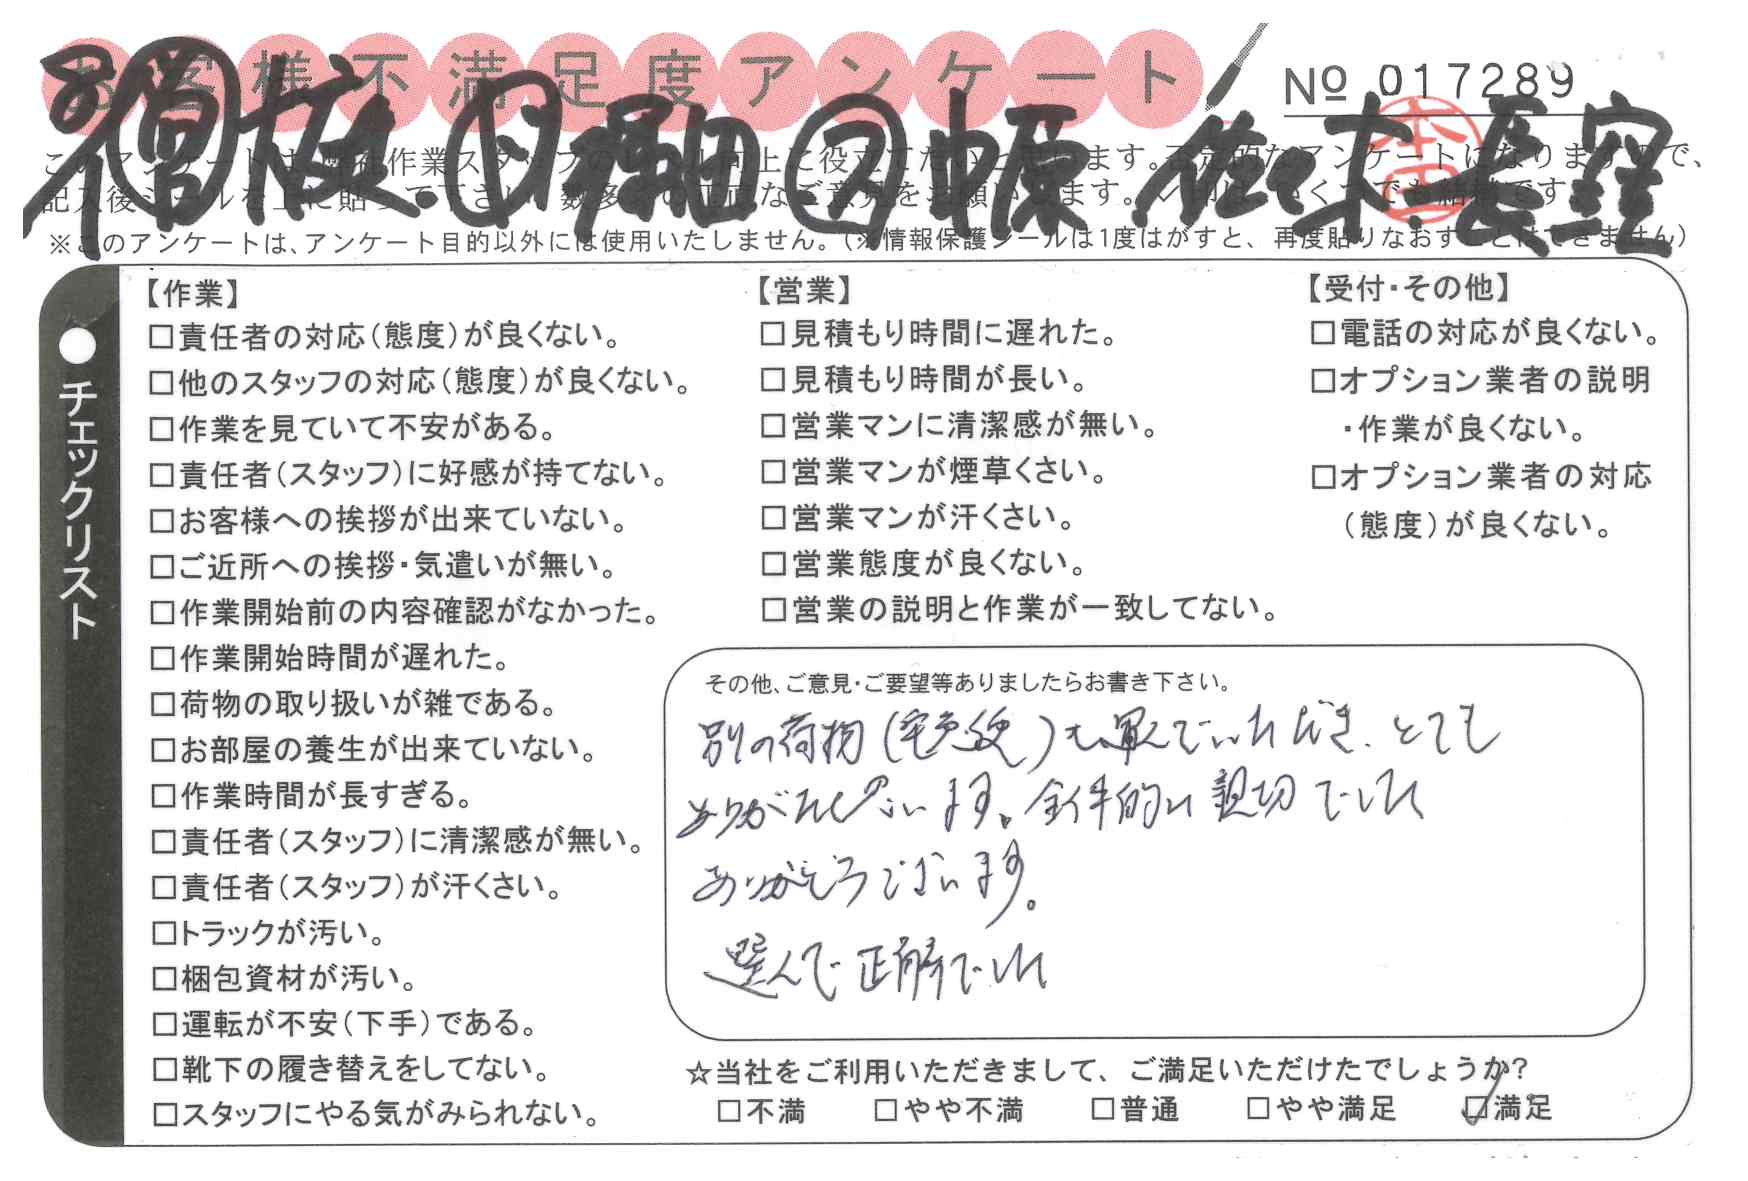 お客様不満足度アンケート
No 017289
本田
樋田 中原 佐々木 長窪
※このアンケートは、アンケート目的以外には使用いたしません。(※情報保護シールは1度はがすと、再度貼りなおすことはできません)
●チェックリスト
【作業】
□責任者の対応(態度)が良くない。
□他のスタッフの対応(態度)が良くない。
□作業を見ていて不安がある。
□責任者(スタッフ)に好感が持てない。
□お客様への挨拶が出来ていない。
□ご近所への挨拶・気遣いが無い。
□作業開始前の内容確認がなかった。
□作業開始時間が遅れた。
□荷物の取り扱いが雑である。
□お部屋の養生が出来ていない。
□作業時間が長すぎる。
□責任者(スタッフ)に清潔感が無い。
□責任者(スタッフ)が汗くさい。
□トラックが汚い。
□梱包資材が汚い。
□運転が不安(下手)である。
□靴下の履き替えをしてない。
□スタッフにやる気がみられない。
【営業】
□見積もり時間に遅れた。
□見積もり時間が長い。
□営業マンに清潔感が無い。
□営業マンが煙草くさい。
□営業マンが汗くさい。
□営業態度が良くない。
□営業の説明と作業が一致してない。
【受付・その他】
□電話の対応が良くない。
□オプション業者の説明
・作業が良くない。
□オプション業者の対応
(態度)が良くない。
その他、ご意見・ご要望等ありましたらお書き下さい。
別の荷物(宅急便)も運んでいただき、とても
ありがたいです。全体的に親切でした
ありがとうございます。
選んで正解でした
☆当社をご利用いただきまして、ご満足いただけたでしょうか?
□不満 □やや不満 □普通 □やや満足 ☑満足